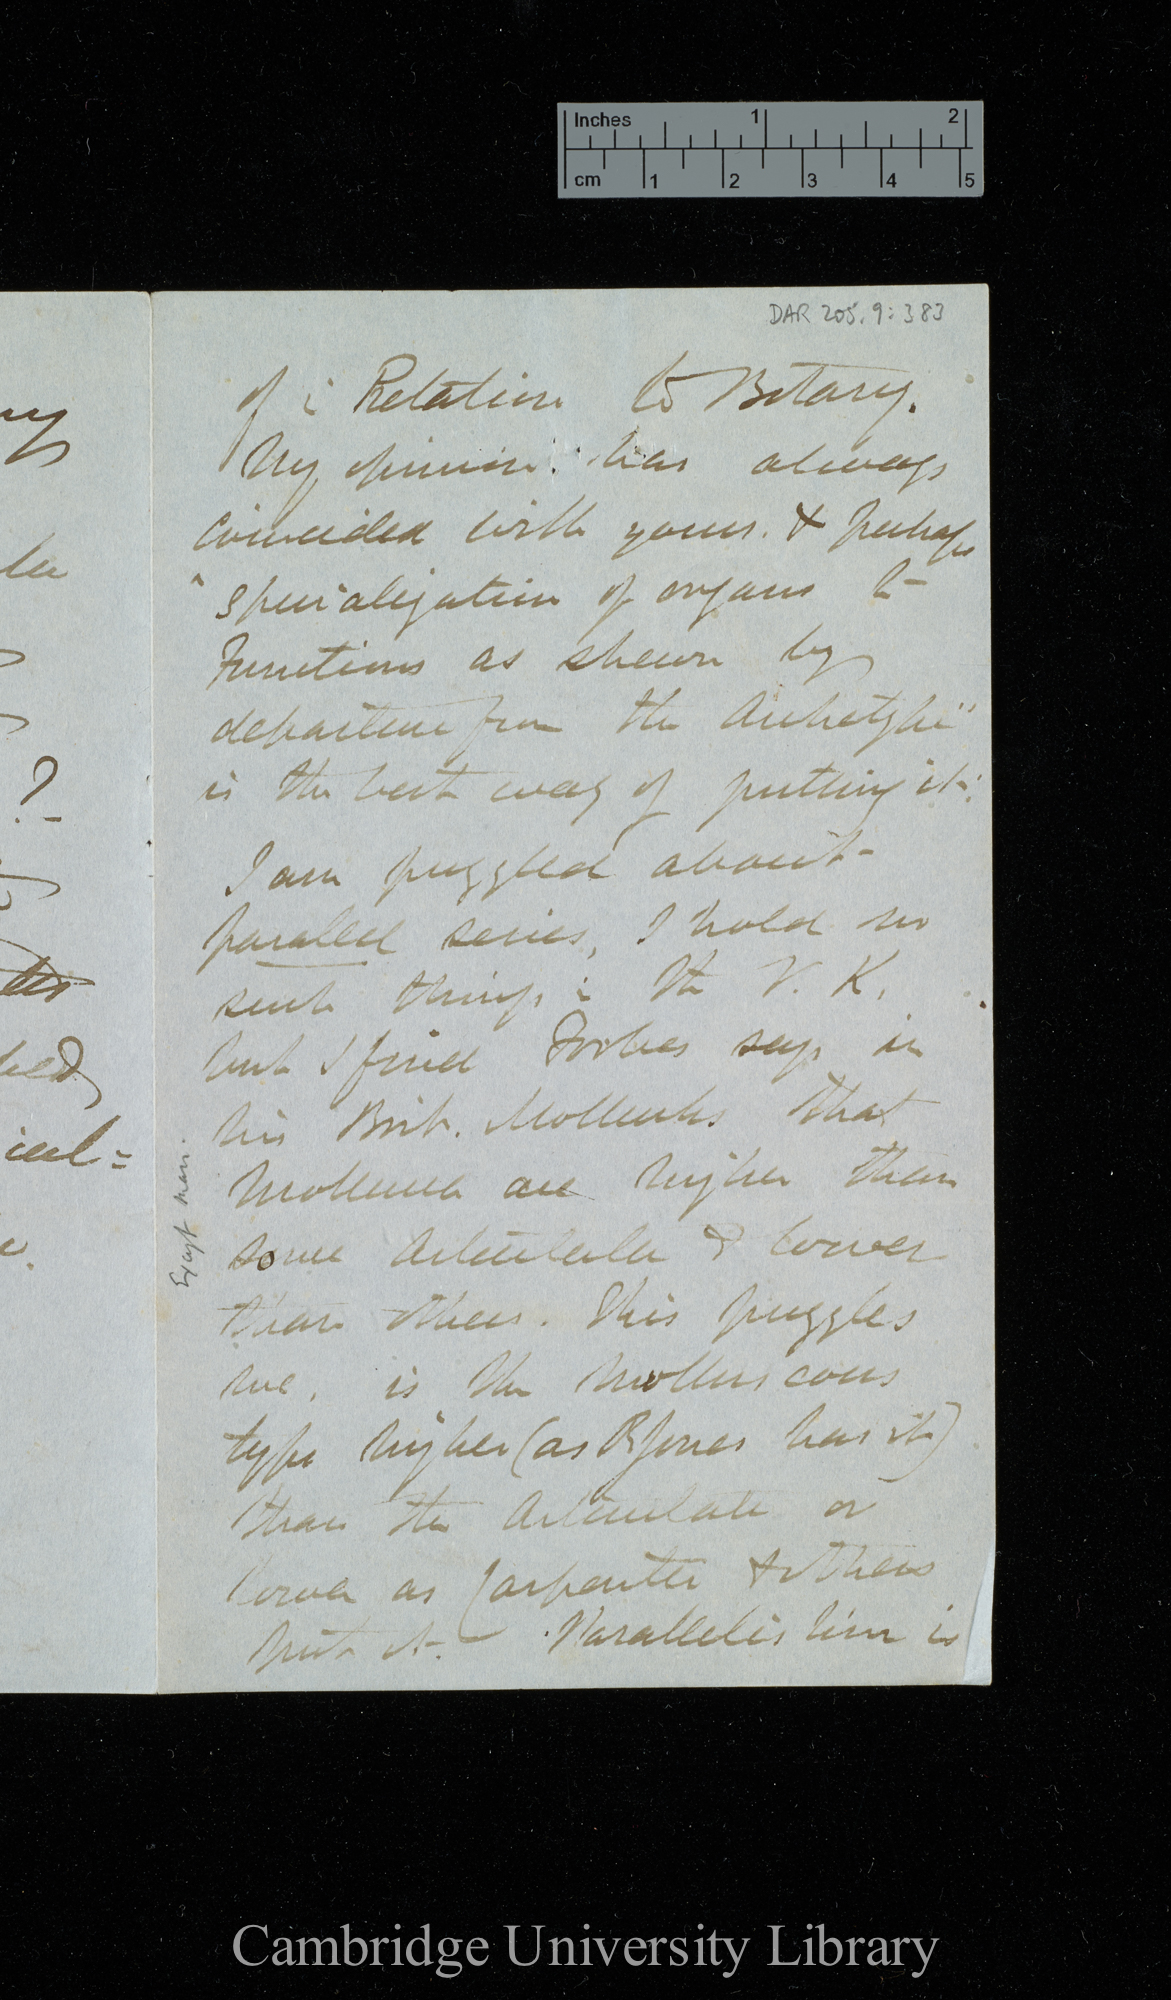 Inches 1 2
cm 1 2 3 4 5
DAR 205.9:383
ny
?
ical=
of in Relation to Botany.
My opinion has always
coincided with yours. & perhaps
"specialization of organs to
functions as shewn by
departure from the Archetype"
is the best way of putting it.
I am puzzled about
parallel series, I hold no
such things in the V. K.
but I find Forbes says in
his Brit. Mollusks that
Mollusca are higher than
some Articulata & lower
than others. This puzzles
me, is the Molluscous
type higher (as R Jones has it)
than the Articulate or
lower as Carpenter & others
put it — Parallelism is
Except man.
Cambridge University Library